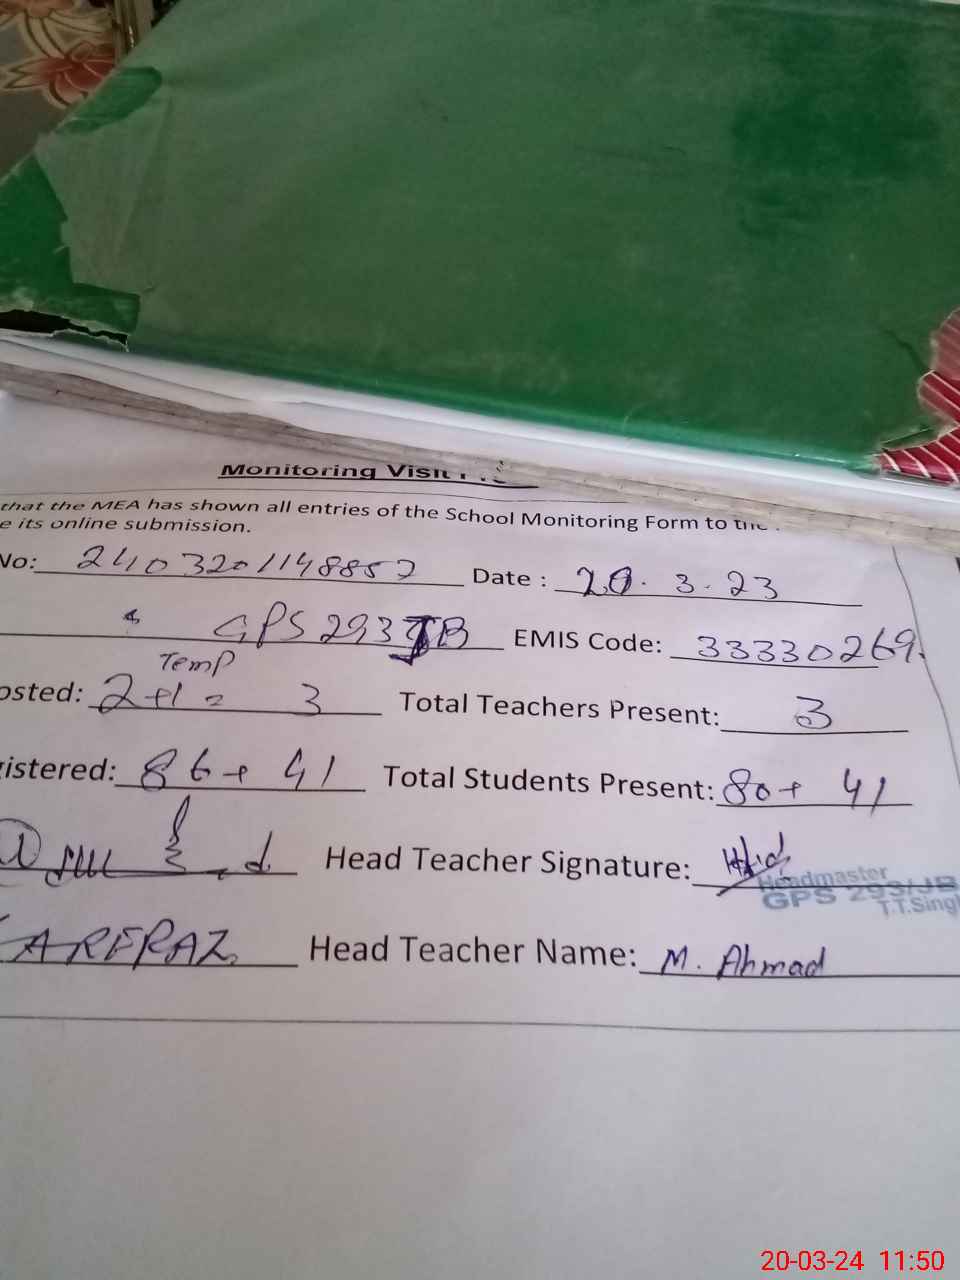 Monitoring Visit
that the MEA has shown all entries of the School Monitoring Form to the
e its online submission.
No: 2403201148857 Date : 20. 3. 23
GPS 293 JB EMIS Code: 33330269
Temp
osted: 2+1 = 3 Total Teachers Present: 3
istered: 86+ 41 Total Students Present: 80+ 41
Head Teacher Signature:
Headmaster
GPS 293/JB
T.T.Singh
Head Teacher Name: M. Ahmad
20-03-24 11:50